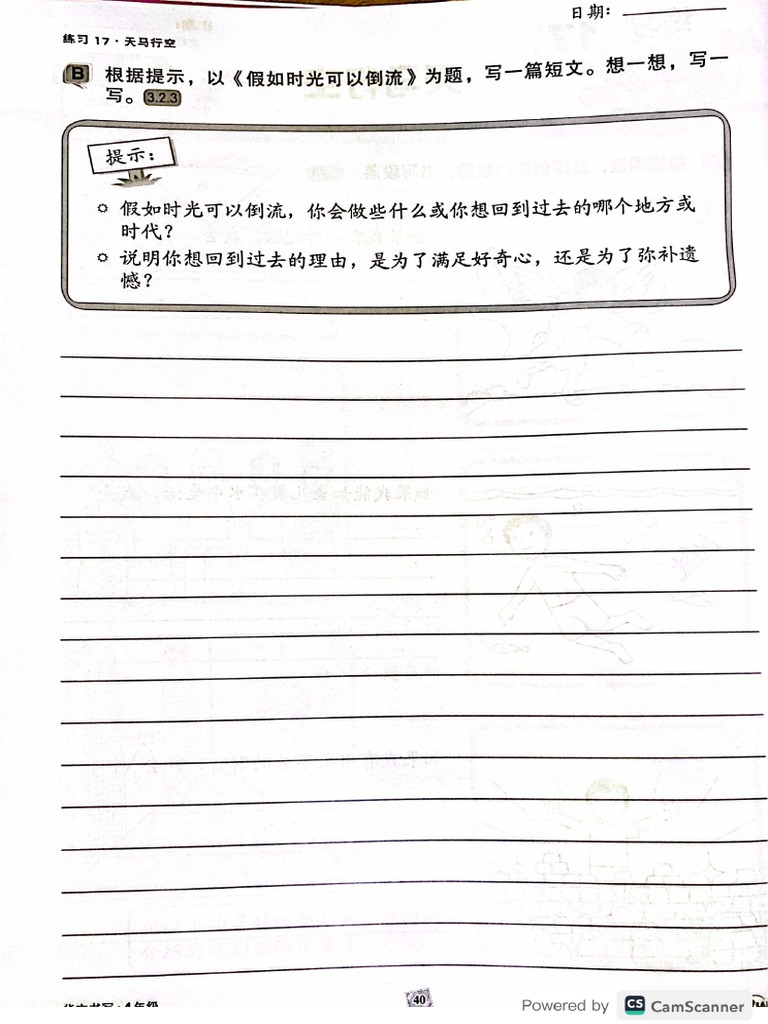 日期：
练习 17·天马行空
B 根据提示，以《假如时光可以倒流》为题，写一篇短文。想一想，写一
写。 3.2.3
提示：
假如时光可以倒流，你会做些什么或你想回到过去的哪个地方或
时代？
说明你想回到过去的理由，是为了满足好奇心，还是为了弥补遗
憾？
如果我能如鱼儿般在水中生活，我会
华文书写·4年级
40
Powered by CS CamScanner